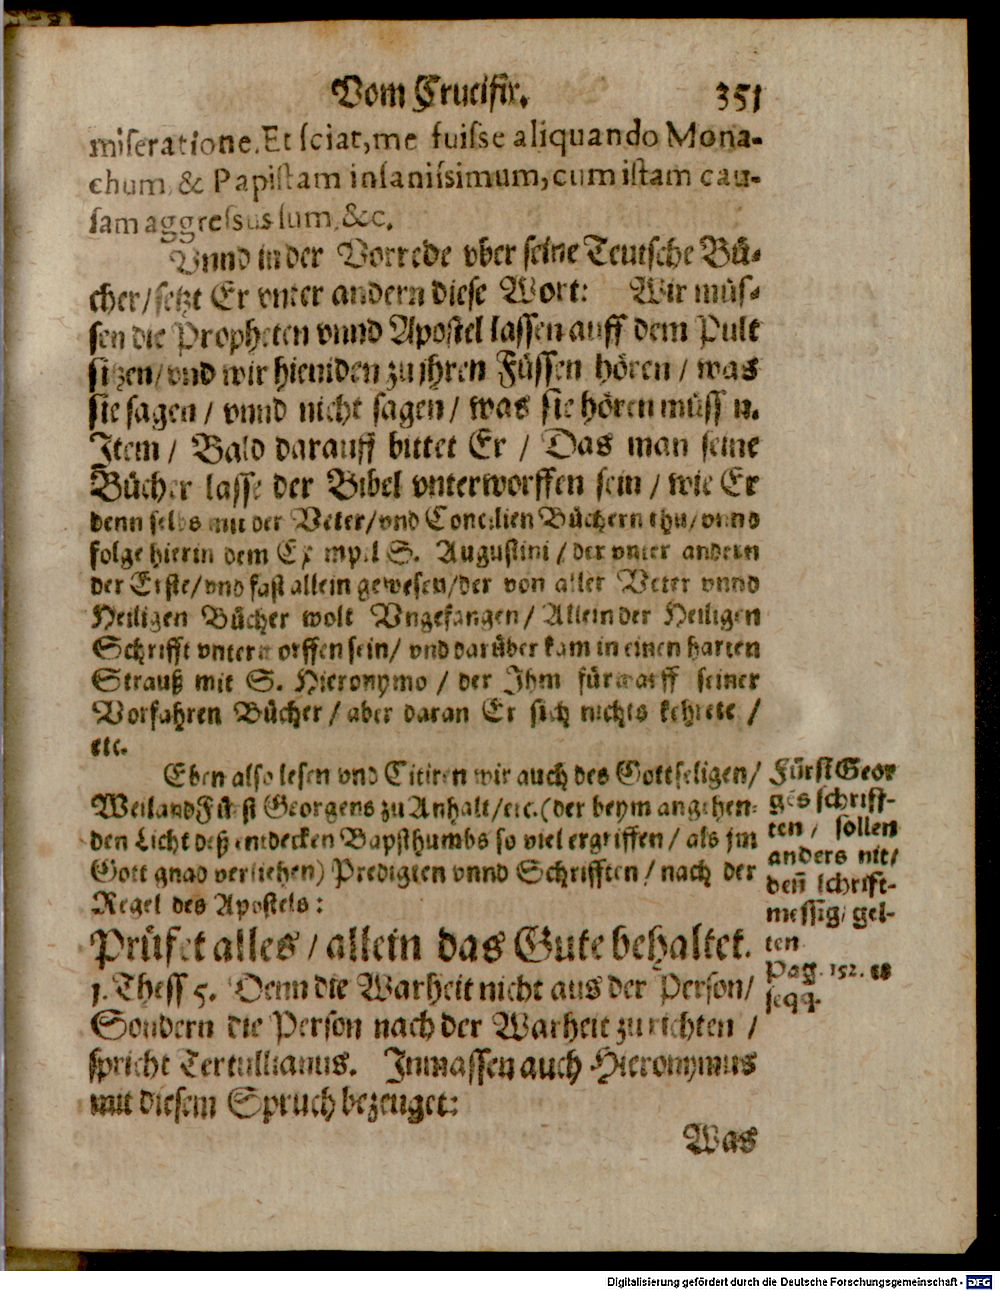 Vom Crucifix. 351
miseratione. Et sciat, me fuisse aliquando Mona-
chum, & Papistam insanissimum, cum istam cau-
sam aggressus sum, &c.
Vnnd in der Vorrede vber seine Teutsche Bü-
cher / setzt Er vnter andern diese Wort: Wir müs-
sen die Propheten vnnd Apostel lassen auff dem Pult
sitzen / vnd wir hieniden zu jhren Füssen hören / was
sie sagen / vnnd nicht sagen / was sie hören müssn.
Item / Bald darauff bittet Er / Das man seine
Bücher lasse der Bibel vnterworffen sein / wie Er
denn selbs mit der Veter / vnd Concilien Büchern thu / vnnd
folge hierin dem Exempel S. Augustini / der vnter andern
der Erste / vnd fast allein gewesen / der von aller Veter vnnd
Heiligen Bücher wolt Vngefangen / Allein der Heiligen
Schrifft vnterworffen sein / vnd darüber kam in einen harten
Strauß mit S. Hieronymo / der Ihm fürwarff seiner
Vorfahren Bücher / aber daran Er sich nichts kehrete /
etc.
Eben also lesen vnd Citiren wir auch des Gottseligen /
Weiland Fürst Georgens zu Anhalt / etc. (der beym angehen-
den Licht deß entdecken Bapsthumbs so viel ergriffen / als jm
Gott gnad verliehen) Predigten vnnd Schrifften / nach der
Regel des Apostels:
Prüfet alles / allein das Gute behaltet.
1. Thess 5. Denn die Warheit nicht aus der Person /
Sondern die Person nach der Warheit zu richten /
spricht Tertullianus. Inmassen auch Hieronymus
mit diesem Spruch bezeuget:
Was
Fürst Geor
ges schriff-
ten / sollen
anders nit /
deñ schrift-
messig / gel-
ten
Pag. 152. &
seqq.
Digitalisierung gefördert durch die Deutsche Forschungsgemeinschaft - DFG